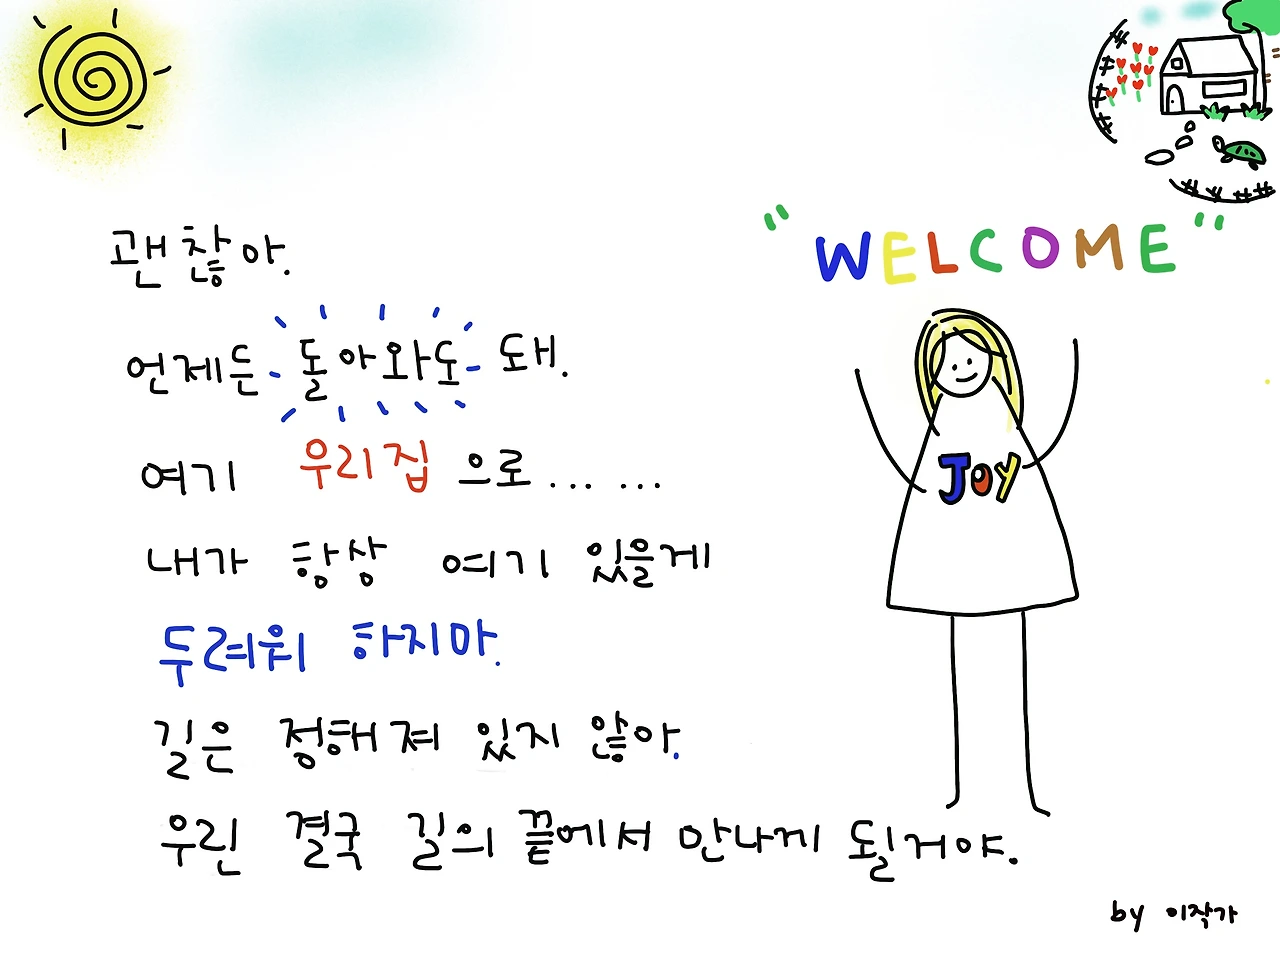 괜찮아.
언제든 돌아와도 돼.
여기 우리집 으로... ...
내가 항상 여기 있을게
두려워 하지마.
길은 정해져 있지 않아.
우린 결국 길의 끝에서 만나게 될거야.
"WELCOME"
JOY
by 이작가